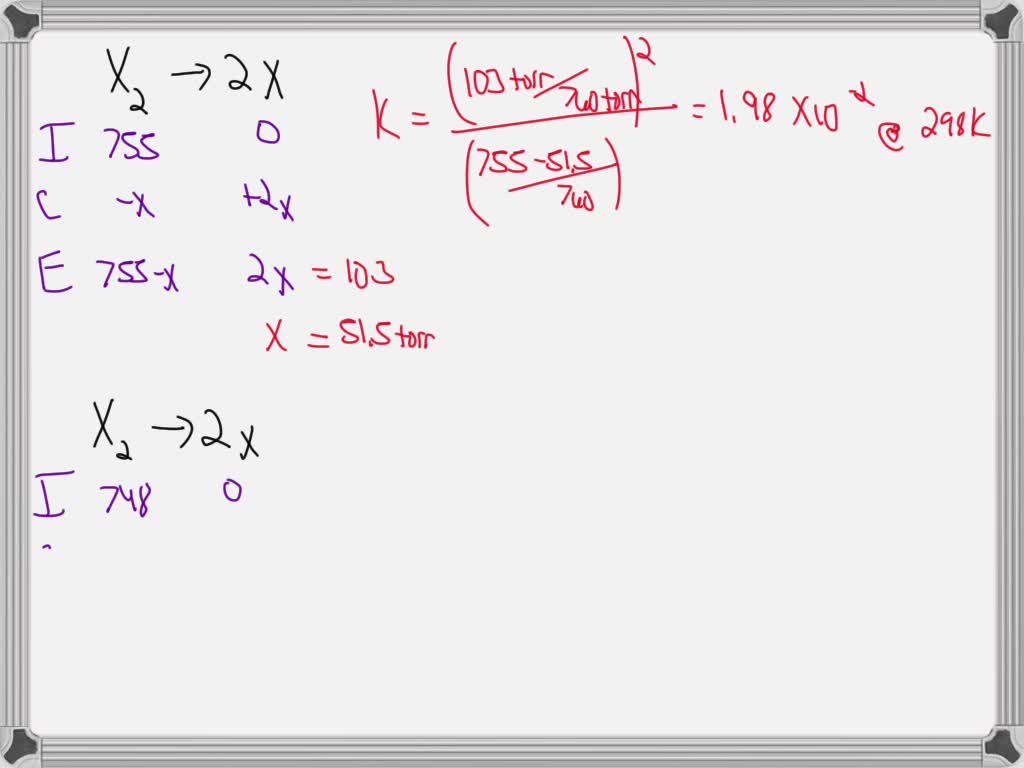 X₂ → 2X
I 755 0
C -x +2x
E 755-x 2x = 103
x = 51.5 torr
K = (103 torr/760 torr)² / (755-51.5/760) = 1.98 x10⁻² @ 298K
X₂ → 2X
I 748 0